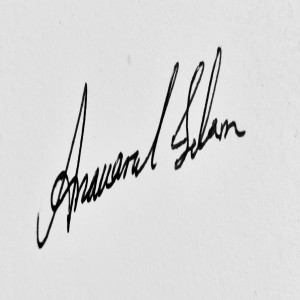 Anawarul Islam